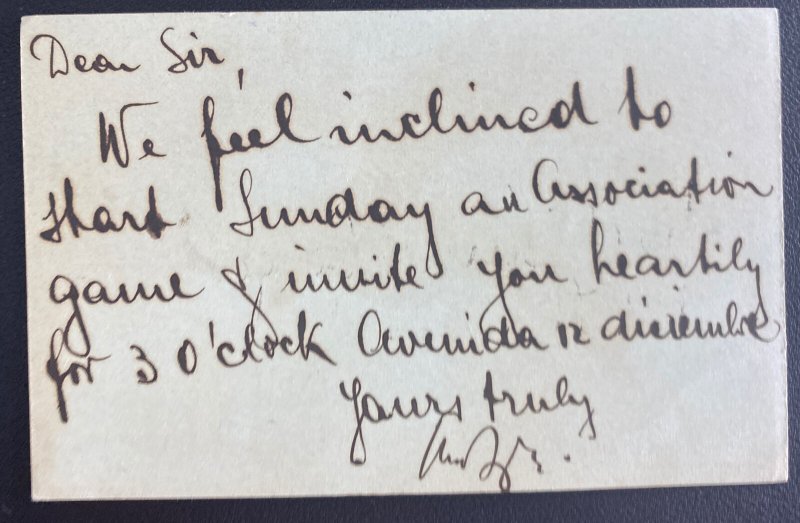 Dear Sir,
We feel inclined to
start Sunday an Association
game & invite you heartily
for 3 O'clock Avenida 12 diciembre
Yours truly